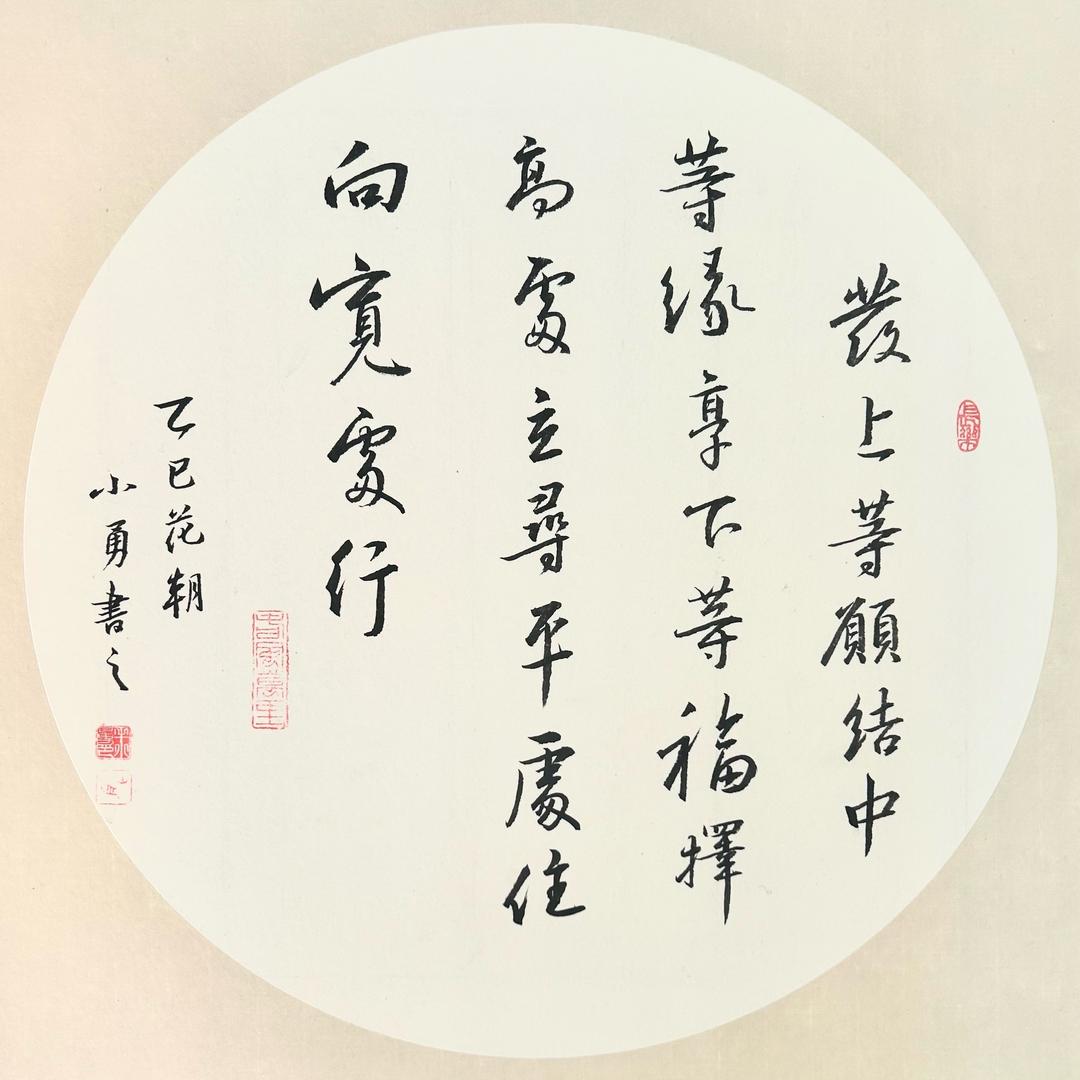 發上等願結中
等緣享下等福擇
高處立尋平處住
向寬處行
乙巳花朝
小勇書之
長樂